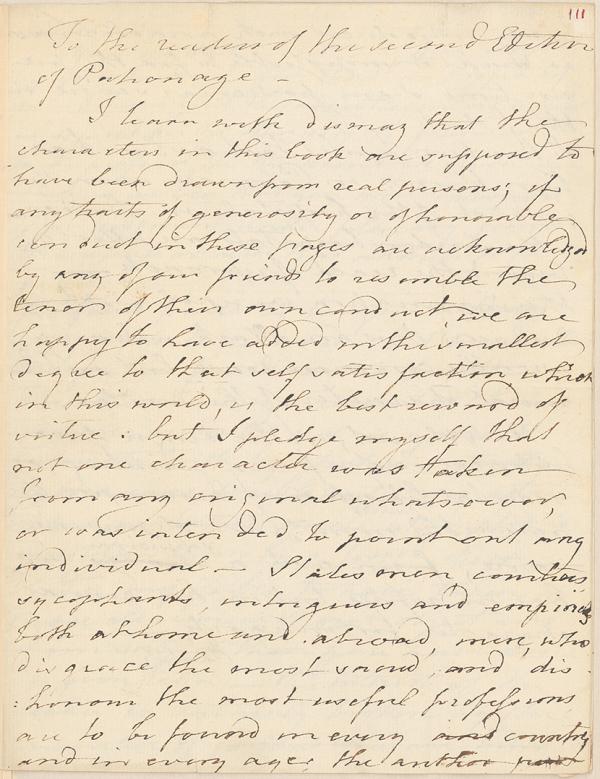 111
To the readers of the second Edition
of Patronage –
I learn with dismay that the
characters in this book are supposed to
have been drawn from real persons; if
any traits of generosity or of honorable
conduct in these pages are acknowledged
by any of our friends to resemble the
tenor of their own conduct, we are
happy to have added in the smallest
degree to that self satisfaction, which
in this world, is the best reward of
virtue: but I pledge myself that
not one character was taken
from any original whatsoever,
or was intended to point out any
individual – Statesmen, courtiers
sycophants, intriguers and empirics
both at home and abroad, men, who
disgrace the most sacred, and dis-
:honour the most useful professions
are to be found in every and country
and in every age; the author